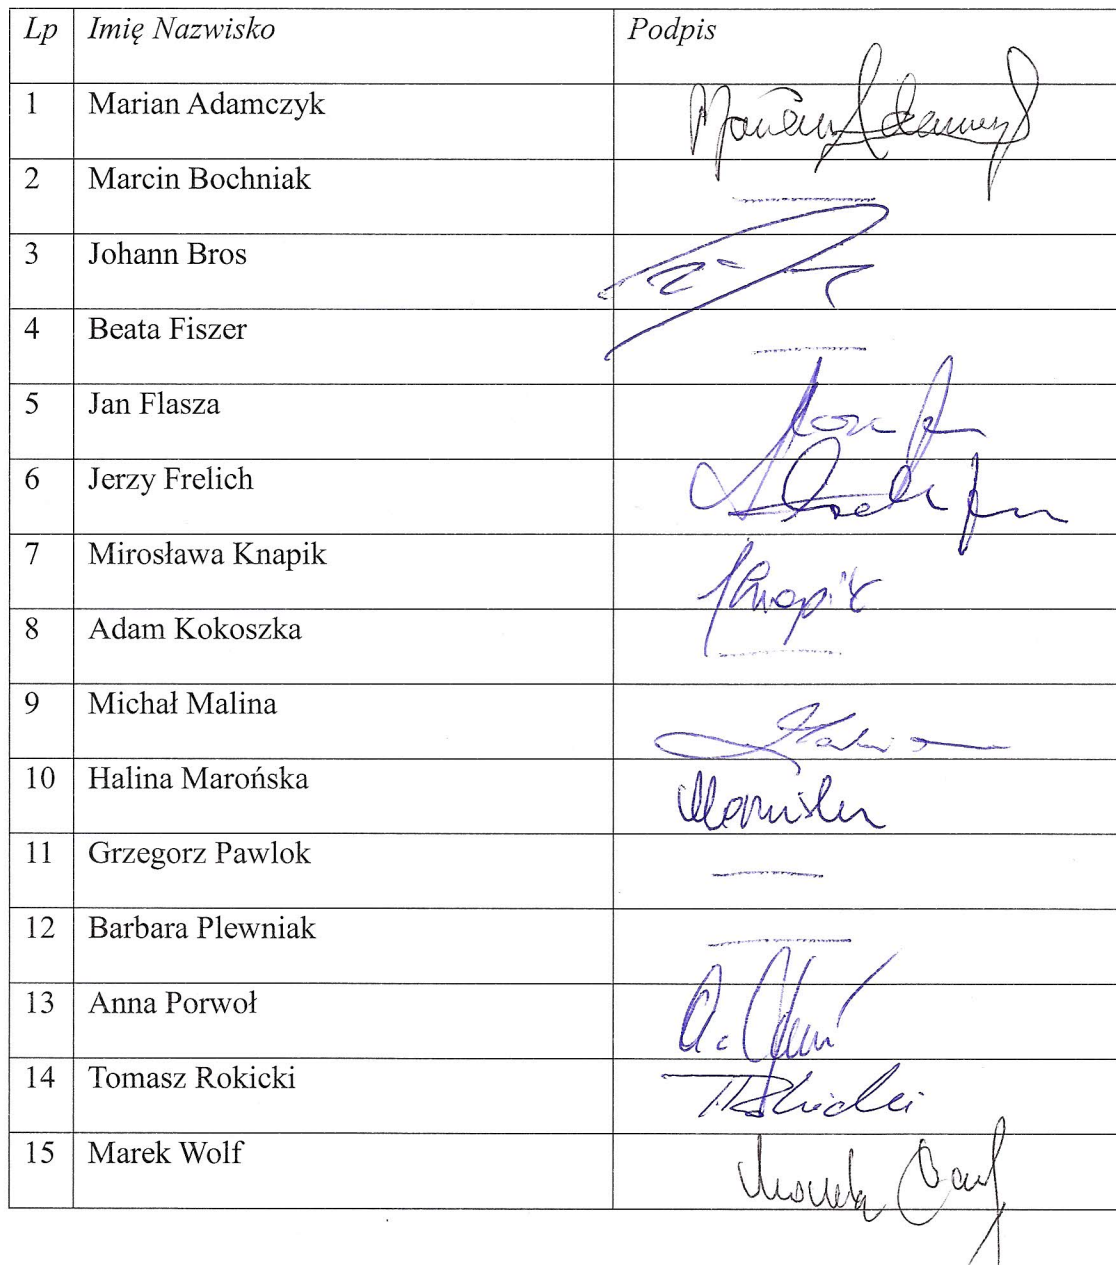 Lp Imię Nazwisko Podpis
1 Marian Adamczyk
2 Marcin Bochniak
3 Johann Bros
4 Beata Fiszer
5 Jan Flasza
6 Jerzy Frelich
7 Mirosława Knapik Knapik
8 Adam Kokoszka
9 Michał Malina
10 Halina Marońska
11 Grzegorz Pawlok
12 Barbara Plewniak
13 Anna Porwoł
14 Tomasz Rokicki
15 Marek Wolf